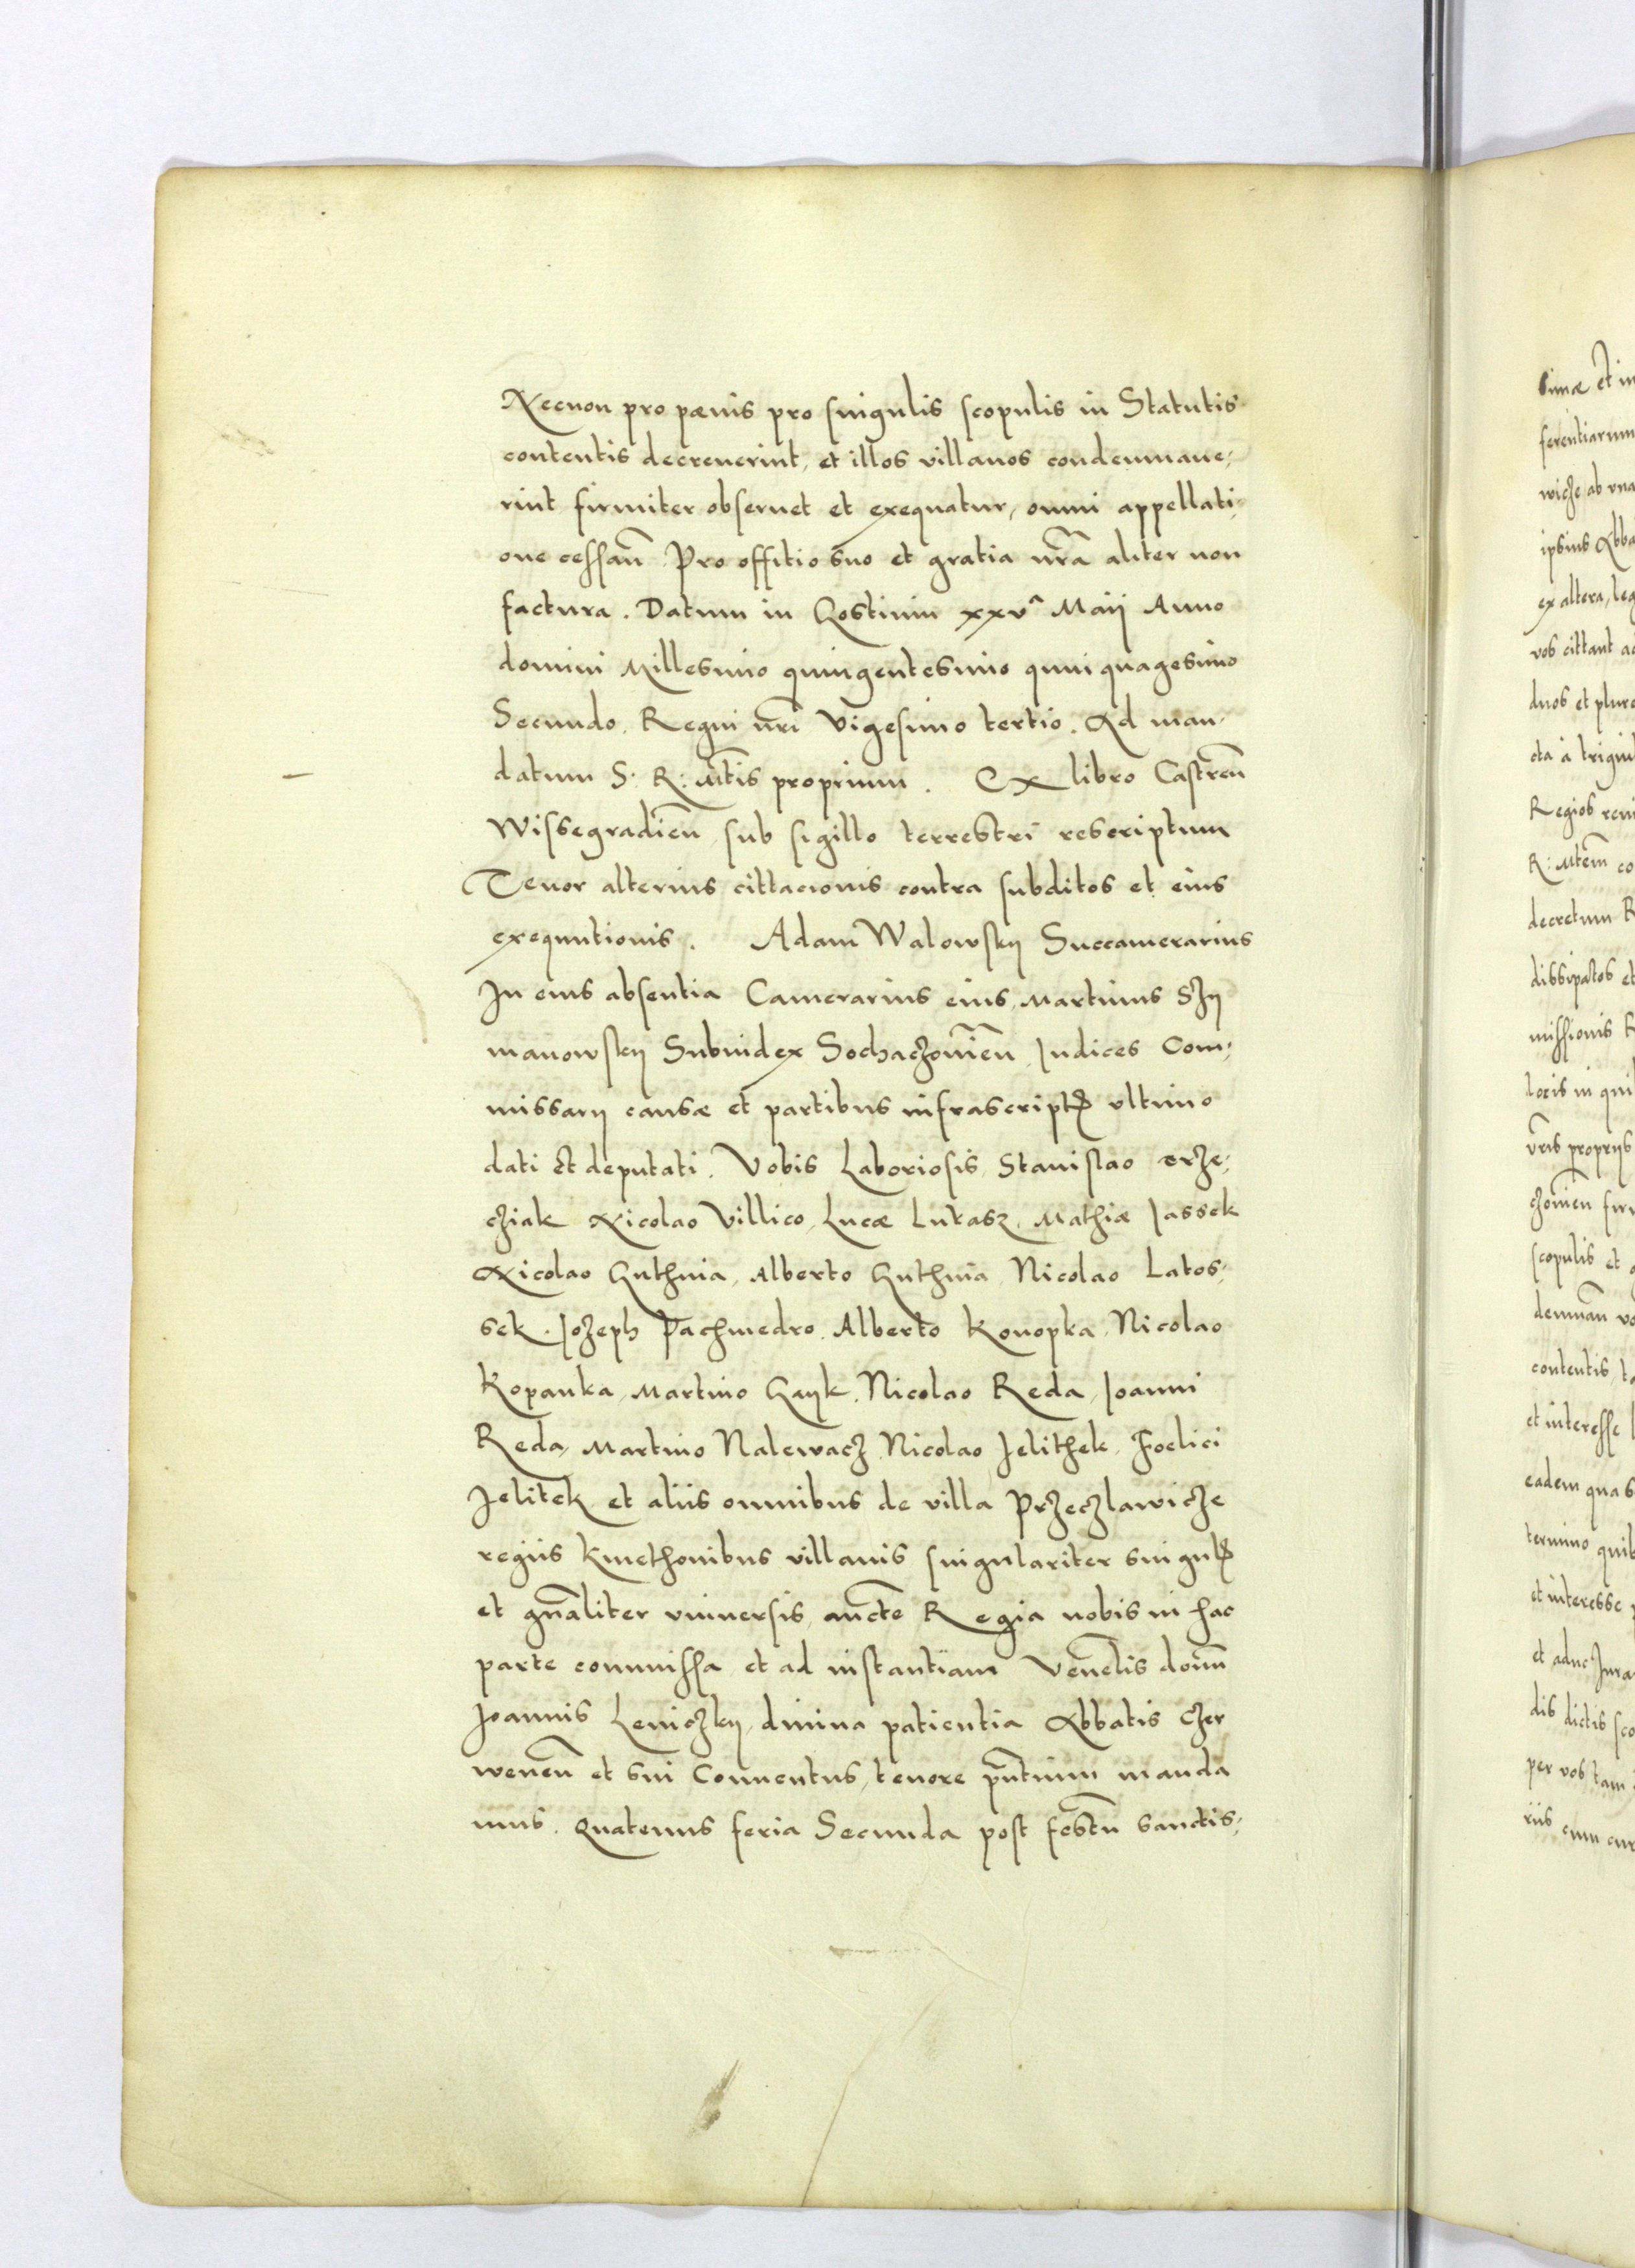 Necnon pro pænis pro singulis scopulis in Statutis
contentis decreuerint, et illos villanos condemnaue,
rint firmiter obseruet et exequatur, omni appellati,
one cessañ Pro offitio suo et gratia nr̃a aliter non
factura. Datum in Gostinin xxvª Maij Anno
domini Millesimo quingentesimo quinquagesimo
Secundo. Regni nr̃i Vigesimo tertio. Ad man,
datum S: R: Mt̃is proprium. Ex libro Castreñ
Wissegradieñ sub sigillo terrestri rescriptum
Tenor alterius cittacionis contra subditos et eius
exequutionis. Adam Walowskij Succamerarius
In eius absentia Camerarius eius, Martinus Szÿ
manowskij Subiudex Sochaczouieñ Judices Com,
missarij causæ et partibus infrascriptꝭ vltimo
dati et deputati. Vobis Laboriosis Stanislao
cziak Nicolao Villico, Lucæ Lukasz, Mathiæ Jassek
Nicolao Guthnia, Alberto Guthnia, Nicolao Latos,
sek. Jozeph Pachmedro. Alberto Konopka, Nicolao
Kopanka, Martino Gayk, Nicolao Reda, Joanni
Reda, Martino Nalewacz, Nicolao Jelithek, Foelici
Jelitek et alijs omnibus de villa Przeczlawicze
regijs Kmethonibus villanis singulariter singulꝭ
et gn̄aliter vniuersis, aucte Regia nobis in hac
parte commissa et ad instantiam Veneℓis domñ
Joannis Leniczkij, diuina patientia Abbatis Czer
weneñ et sui Conuentus, tenore pñtium manda
mus. Quatenus feria Secunda post festũ sanctis,
simæ et in
ferentiarum
wicze ab vna
ipsius Abba
ex altera, leg
vos cittant ad
duos et plure
cta à trigin
Regios reui
R: Mtem̃ co
decretum R
dissipatos et
missionis R
locis in qui
vr̃is proprijs
czouieñ fir
scopulis et
demnañ vo
contentis, ta
et interesse
eadem qua s
termino quib
et interesse
et aduc Jura
dis dictis sco
per vos tam
rijs cum cur